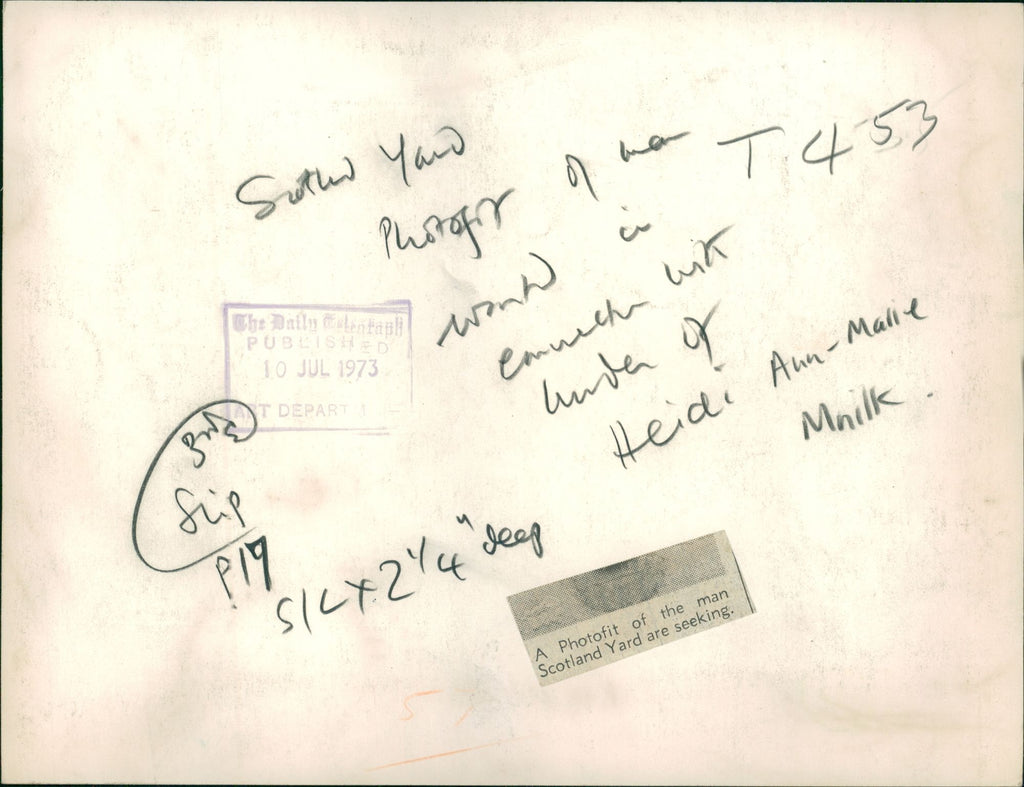 Scotland Yard
Photofit of man
T 453
wanted in
connection with
murder of
Heidi Ann-Marie
Mnilk.
The Daily Telegraph
PUBLISHED
10 JUL 1973
ART DEPART
Slip
P.17
S/C x 2 1/4" deep
A Photofit of the man
Scotland Yard are seeking.
5